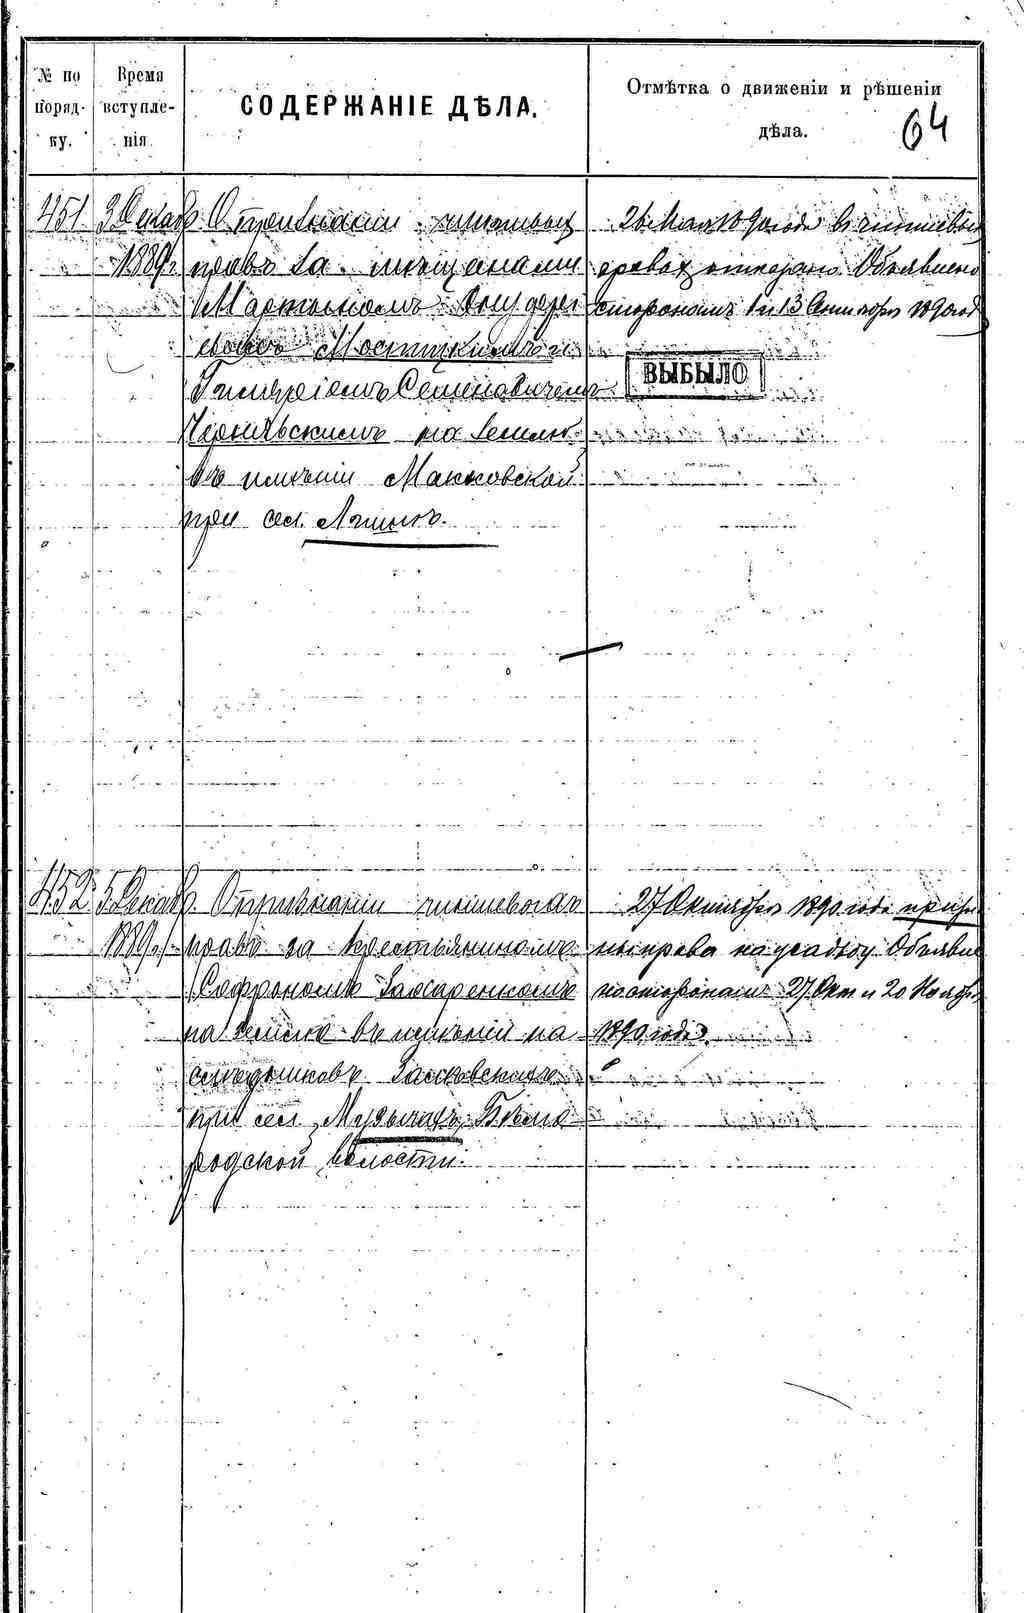 № по поряд- ку.
Время вступле- нія.
СОДЕРЖАНІЕ ДѢЛА.
Отмѣтка о движеніи и рѣшеніи дѣла.
64
451
3 Декабр.
1889 г.
О признаніи чиншевых
правъ за мещанами
Мартыномъ
Мостицкимъ и
Григоріемъ Семеновичемъ
Чернявскимъ на землю
въ имѣніи Маньковской
при сел.
26 Мая 1890 года в чиншевых
правах отказано Объявлено
сторонамъ 1 и 13 Сентября 1890 год
ВЫБЫЛО
452
5 Декабр.
1889 г.
О признаніи чиншевыхъ
правъ за крестьяниномъ
Софрономъ Захаренкомъ
на землю въ имѣніи на
слѣдниковъ
при сел. Музычахъ Бѣло
родской волости.
27 Октября 1890 года призна
ны права на усадьбу Объявле
но сторонамъ 27 Окт и 20 Ноября
1890 года